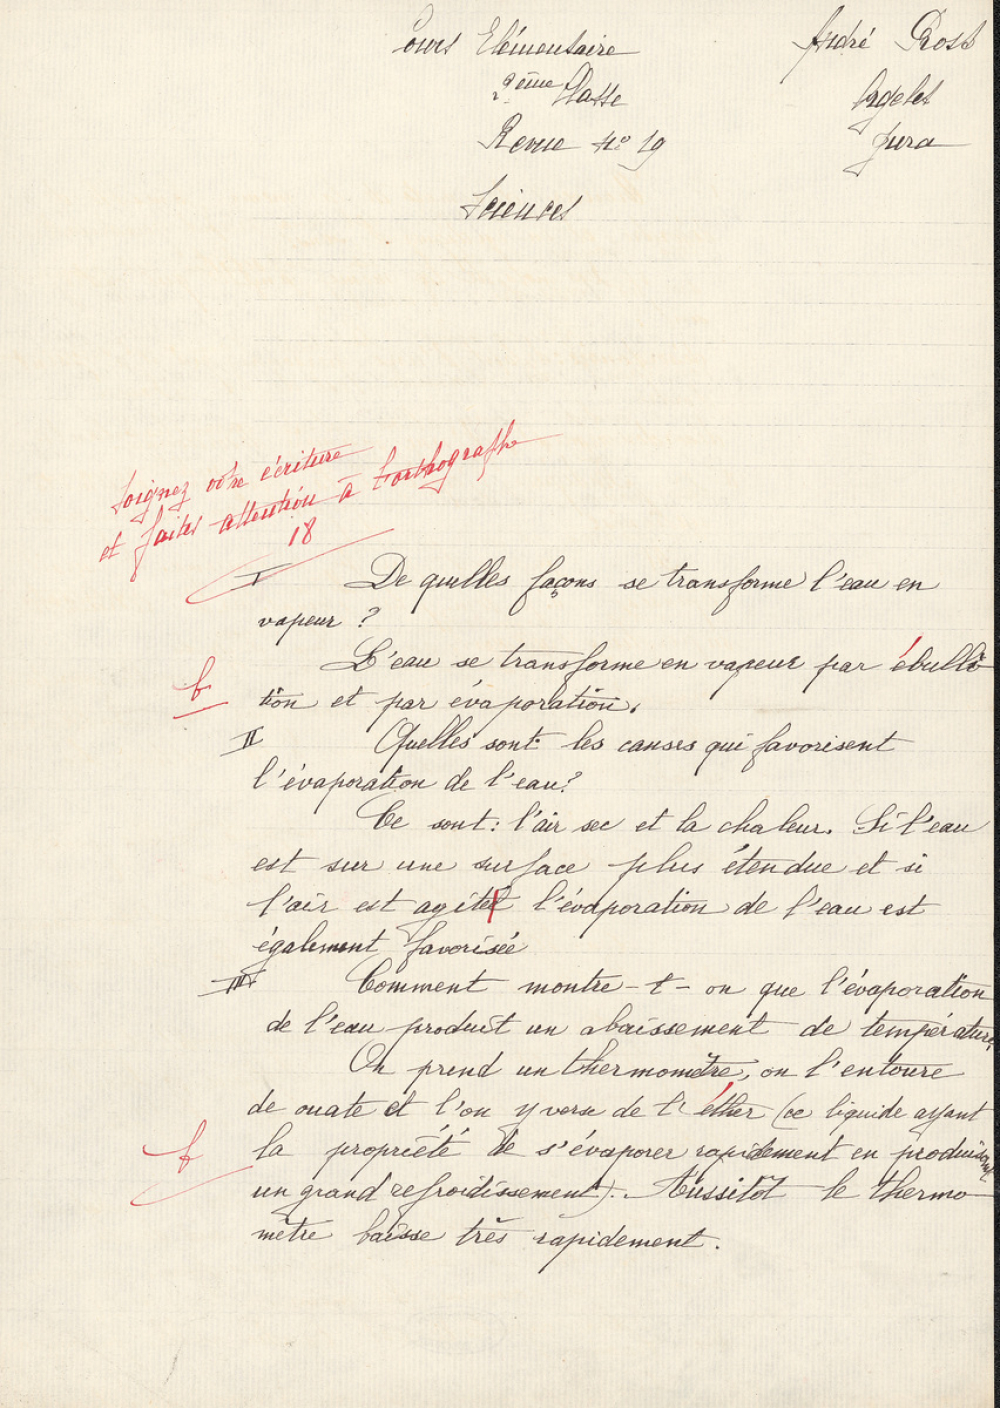 Cours Elémentaire
André Prost
2ème Classe
Orgelet
Revue No 19
Jura
Sciences
Soignez votre écriture
et faites attention à l'orthographe
18
I De quelles façons se transforme l'eau en
vapeur ?
L'eau se transforme en vapeur par ébulli-
b tion et par évaporation.
II Quelles sont les causes qui favorisent
l'évaporation de l'eau ?
Ce sont : l'air sec et la chaleur. Si l'eau
est sur une surface plus étendue et si
l'air est agitét l'évaporation de l'eau est
également favorisée
III Comment montre-t-on que l'évaporation
de l'eau produit un abaissement de température
On prend un thermomètre, on l'entoure
de ouate et l'on y verse de l'éther (ce liquide ayant
la propriété de s'évaporer rapidement en produisant
un grand refroidissement). Aussitôt le thermo-
mètre baisse très rapidement.